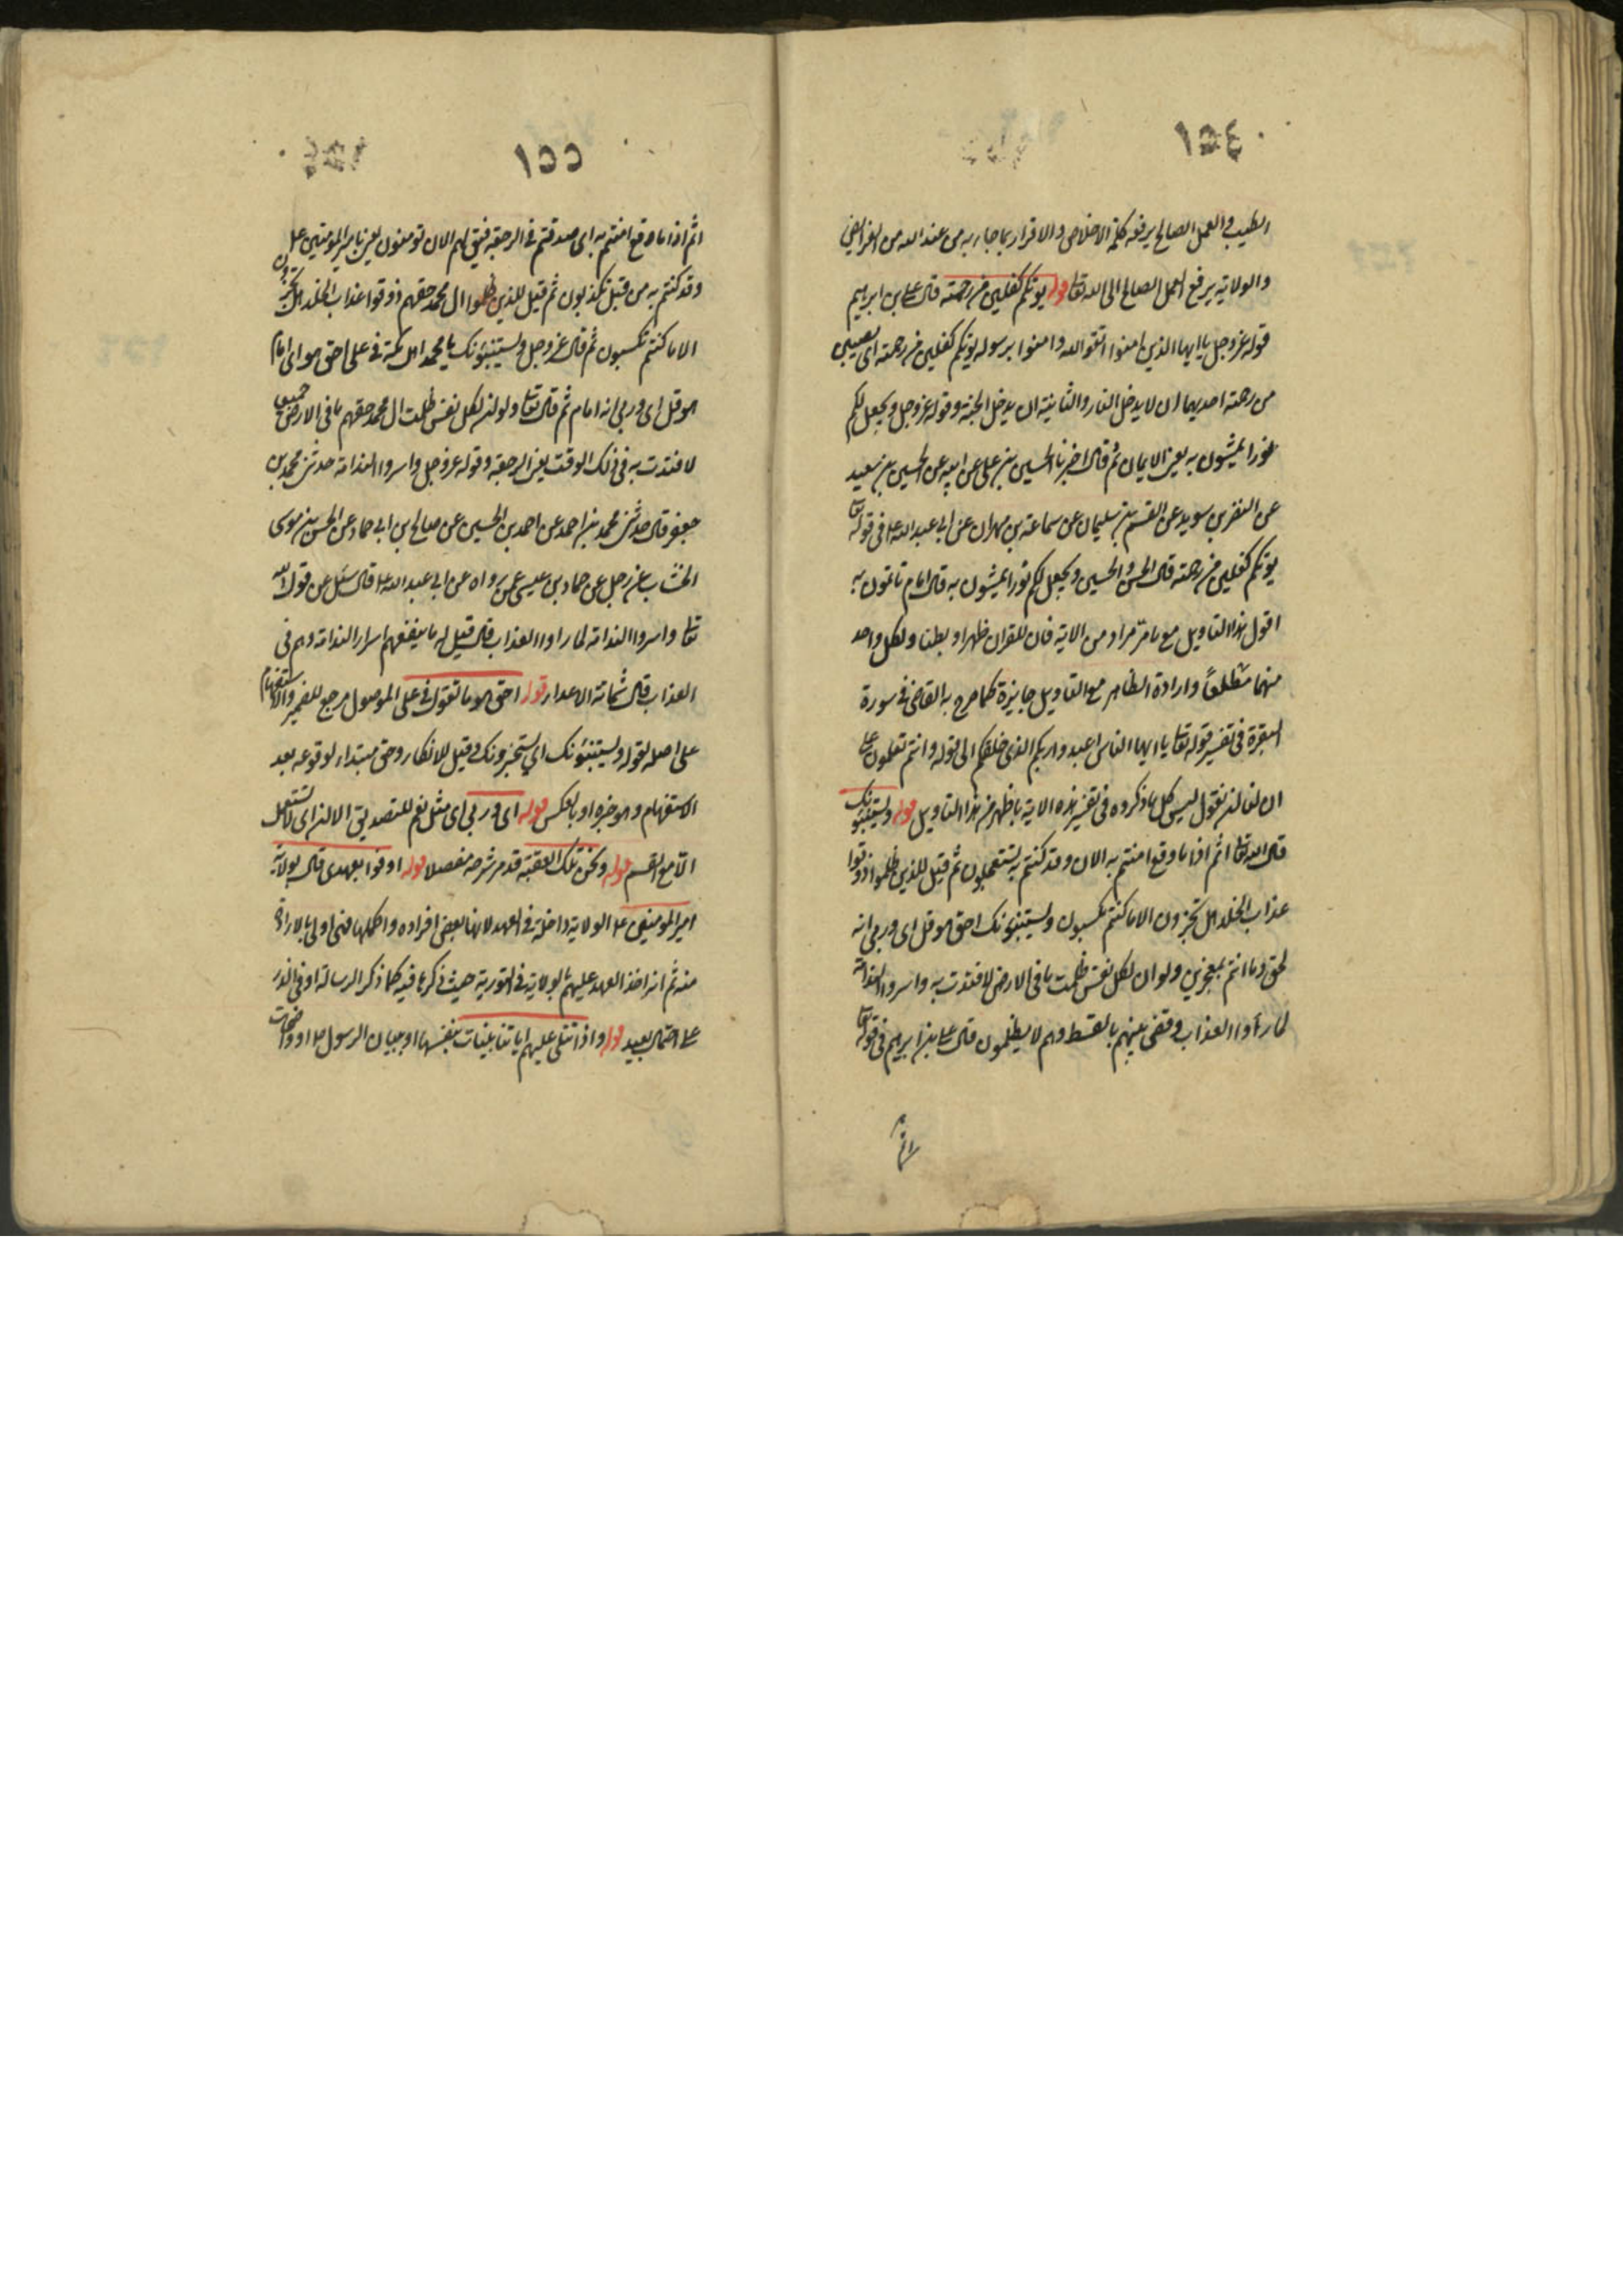 ١٥٤
الطيب والعمل الصالح يرفعه كلمة الاخلاص والاقرار بما جاء به من عند الله من الفرائض
والولاية يرفع العمل الصالح الى الله تعا قوله يؤتكم كفلين من رحمته قال على بن ابراهيم
قوله عز وجل يا ايها الذين امنوا اتقوا الله وامنوا برسوله يؤتكم كفلين من رحمته اى نصيبين
من رحمته احديهما ان لا يدخل النار والثانية ان يدخل الجنة وقوله عز وجل ويجعل لكم
نورا تمشون به يعنى الايمان ثم قال اخبرنا الحسين بن على عن ابيه عن الحسين بن سعيد
عن النضر بن سويد عن القسم بن سليمان عن سماعة بن مهران عن ابى عبد الله ع فى قوله تعا
يؤتكم كفلين من رحمته قال الحسن والحسين ويجعل لكم نورا تمشون به قال امام تاتمون به
اقول هذا التاويل مع ما مر مراد من الاية فان للقران ظهرا وبطنا ولكل واحد
منهما مطلعا وارادة الظاهر مع التاويل جايزة كما صرح به القاضى فى سورة
البقرة فى تفسير قوله تعا يا ايها الناس اعبدوا ربكم الذى خلقكم الى قوله وانتم تعلمون على
ان لنا ان نقول ليس كل ما ذكروه فى تفسير هذه الاية باظهر من هذا التاويل قوله ويستنبئونك
قال الله تعا اثم اذا ما وقع امنتم به الان وقد كنتم به تستعجلون ثم قيل للذين ظلموا ذوقوا
عذاب الخلد هل تجزون الا ما كنتم تكسبون ويستنبئونك احق هو قل اى وربى انه
لحق وما انتم بمعجزين ولو ان لكل نفس ظلمت ما فى الارض لافتدت به واسروا الندامة
لما رأوا العذاب وقضى بينهم بالقسط وهم لا يظلمون قال على بن ابرهيم فى قوله تعا
اثم
١٥٥
اثم اذا ما وقع امنتم به اى صدقتم فى الرجعة فيق لهم الان تومنون يعنى بامير المومنين ع
وقد كنتم به من قبل تكذبون ثم قيل للذين ظلموا ال محمد حقهم ذوقوا عذاب الخلد هل تجزون
الا ما كنتم تكسبون ثم قال عز وجل ويستنبئونك يا محمد اهل مكة فى على احق هو اى امام
هو قل اى وربى انه امام ثم قال تعا ولو ان لكل نفس ظلمت ال محمد حقهم ما فى الارض جميعا
لافتدت به فى ذلك الوقت يعنى الرجعة وقوله عز وجل واسروا الندامة حدثنى محمد بن
جعفر قال حدثنى محمد بن احمد عن احمد بن الحسين عن صالح بن ابى حماد عن الحسن بن موسى
الخشاب عن رجل عن حماد بن عيسى عمن رواه عن ابى عبد الله ع قال سئل عن قول الله
تعا واسروا الندامة لما راوا العذاب قال قيل له ما ينفعهم اسرار الندامة وهم فى
العذاب قال شماتة الاعداء قوله احق هو ما تقول فى على الموصول مرجع للضمير والاستفهام
على اصله لقوله ويستنبئونك اى يستخبرونك وقيل للانكار وحق مبتداء لوقوعه بعد
الاستفهام وهو خبره او بالعكس قوله اى وربى اى مثل نعم للتصديق الا ان اى لا تستعمل
الا مع القسم قوله ونحن تلك العقبة قد مر شرحه مفصلا قوله اوفوا بعهدى قال بولاية
امير المومنين ع الولاية داخلة فى العهد لانها بعض افراده واكملها فهى اولى بالارادة
منه ثم انه اخذ العهد عليهم بالولاية فى التورية حيث ذكرها فيه كما ذكر الرسالة او فى الذر
على احتمال بعيد قوله واذا تتلى عليهم اياتنا بينات بنفسها او ببيان الرسول ص او واضحات